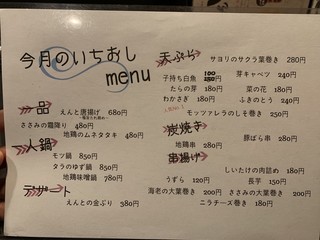 今月のいちおし
menu
一品
えんと唐揚げ 680円
ささみの霜降り 480円
地鶏のムネタタキ 480円
一人鍋
モツ鍋 850円
タラのゆず鍋 850円
地鶏味噌鍋 780円
デザート
えんとの金ぷり 380円
天ぷら
サヨリのサクラ葉巻き 280円
子持ち白魚 100 150円 芽キャベツ 240円
たらの芽 180円 菜の花 180円
わかさぎ 180円 ふきのとう 240円
モッツァレラのしそ巻き 250円
炭焼き
地鶏串 280円 豚ばら串 280円
串揚げ
しいたけの肉詰め 180円
うずら 120円 長芋 150円
海老の大葉巻き 200円 ささみの大葉巻き 200円
ニラチーズ巻き 180円